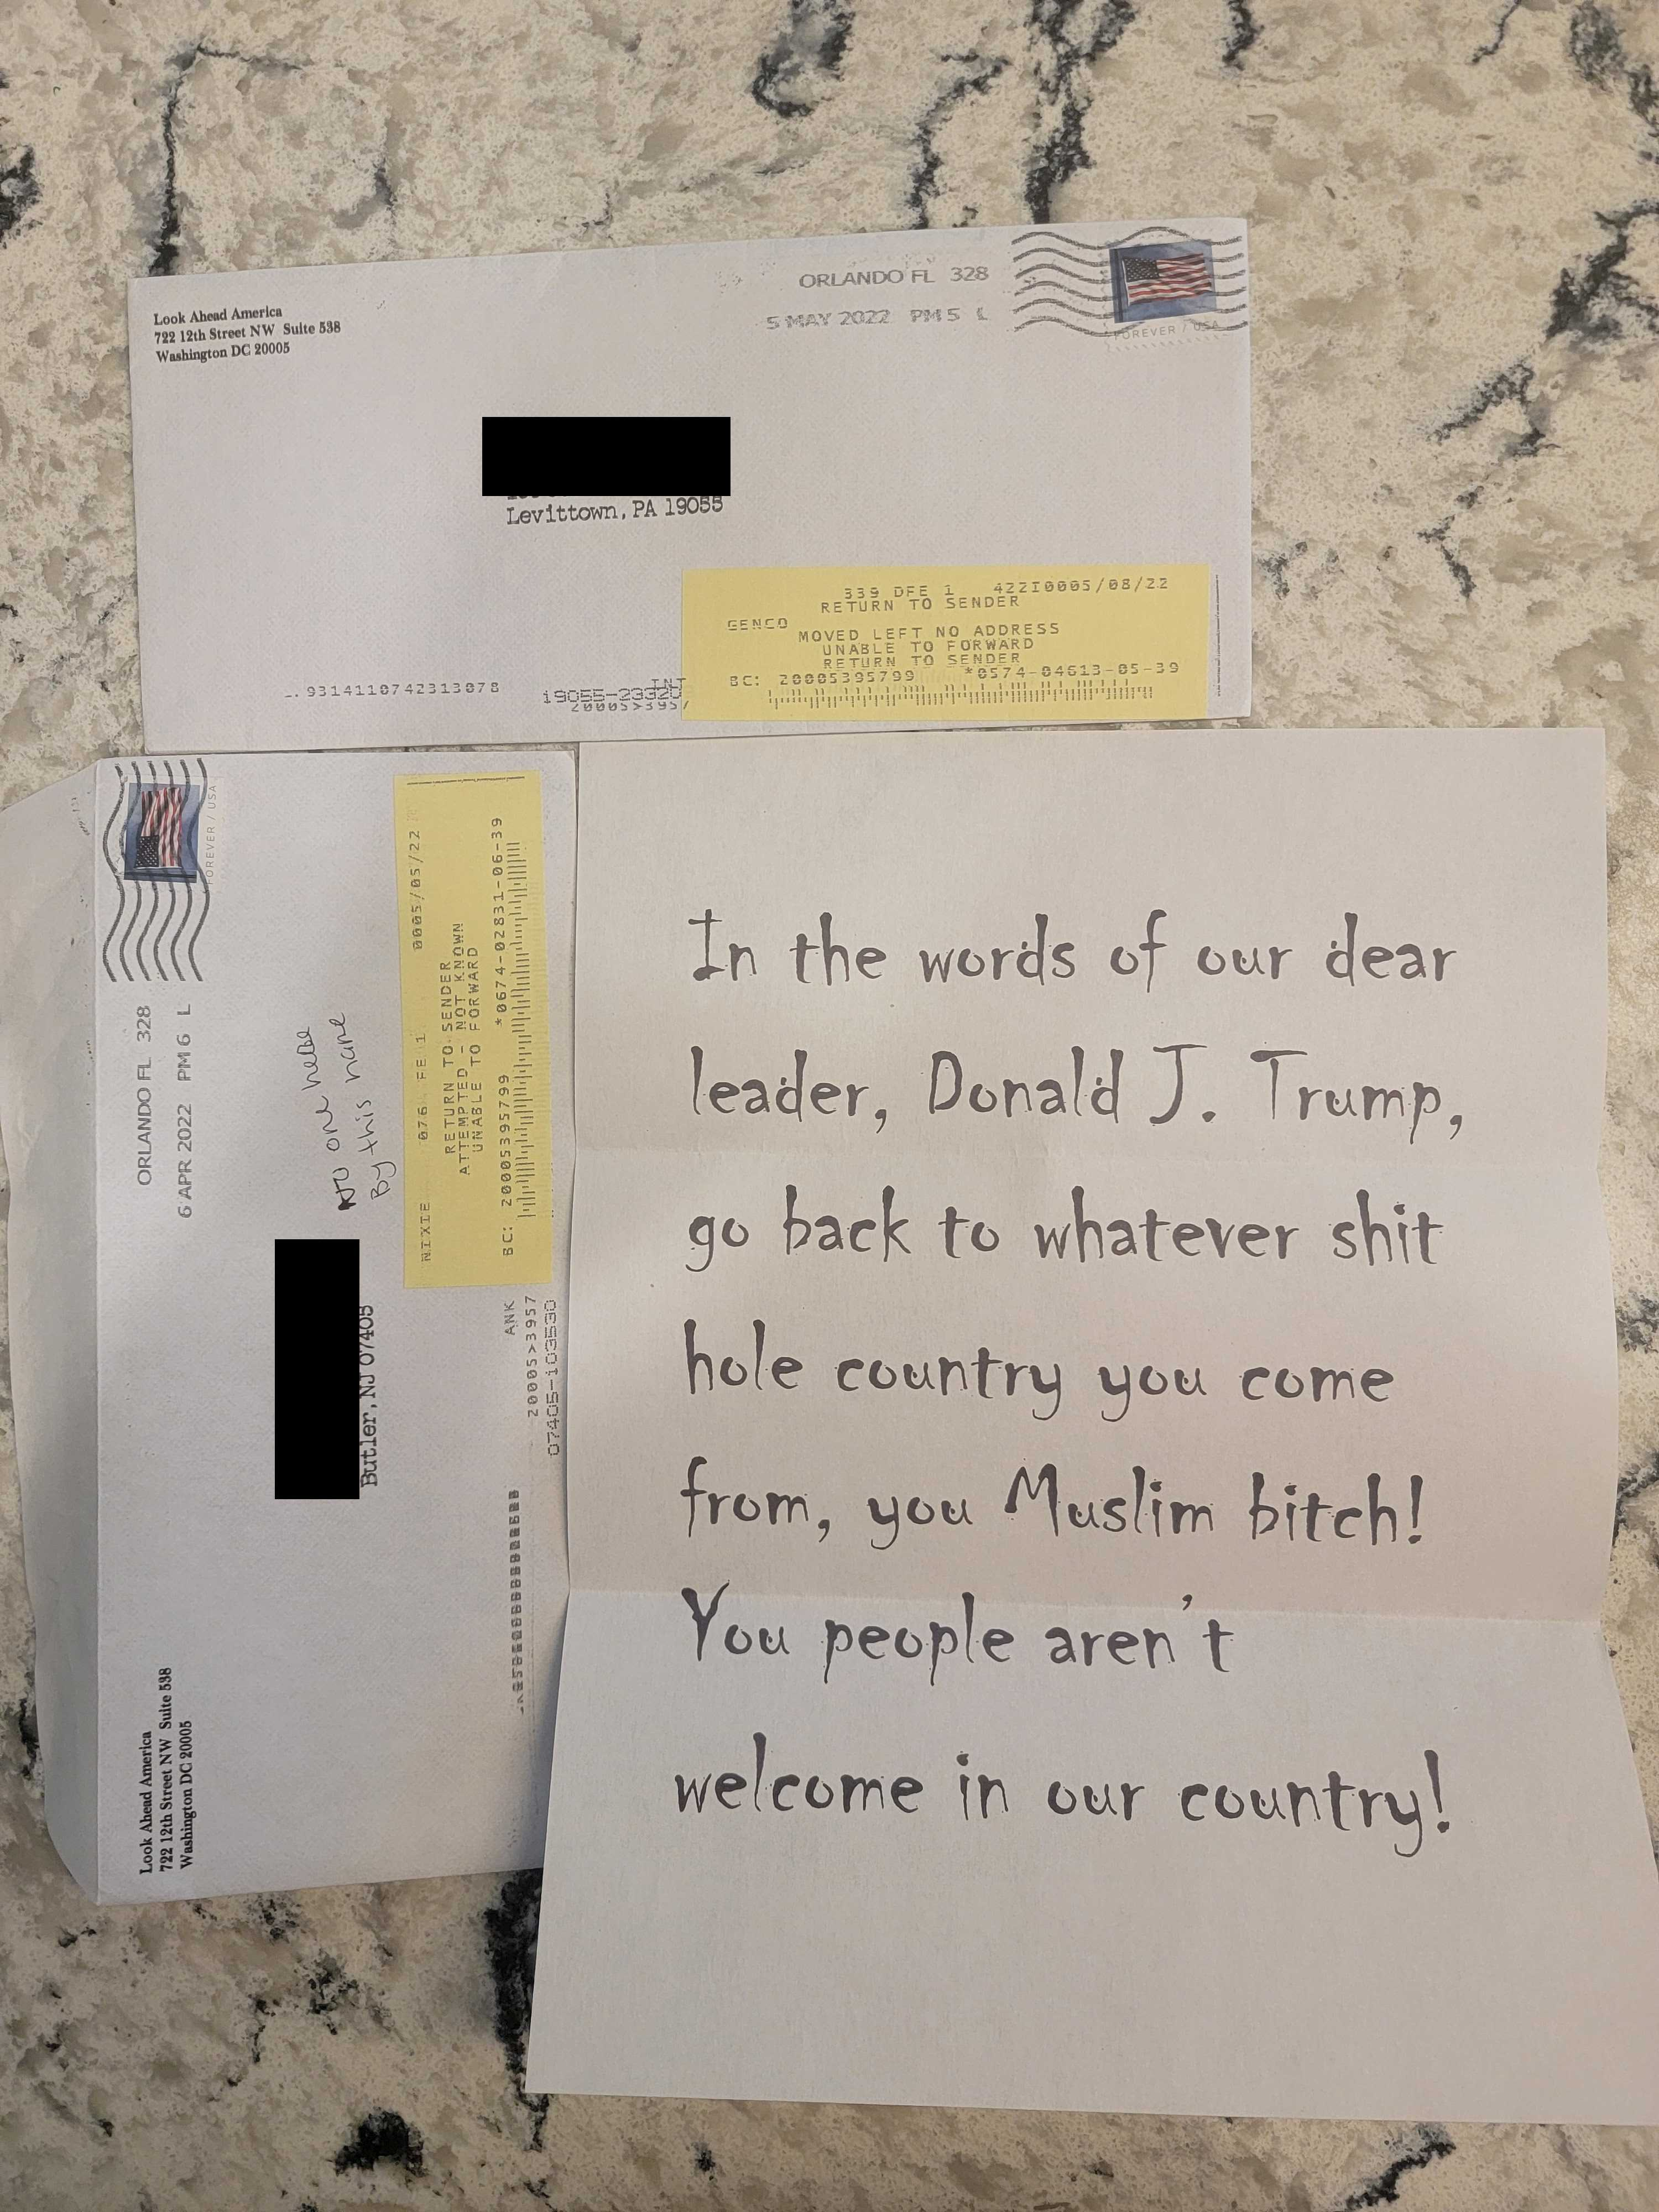 Look Ahead America
722 12th Street NW Suite 538
Washington DC 20005
ORLANDO FL 328
5 MAY 2022 PM 5 L
FOREVER / USA
Levittown, PA 19055
339 DFE 1 42210005/08/22
RETURN TO SENDER
GENCO
MOVED LEFT NO ADDRESS
UNABLE TO FORWARD
RETURN TO SENDER
BC: 20005395799 *0574-04613-05-39
9314110742313078
INT
20005>3957
Look Ahead America
722 12th Street NW Suite 538
Washington DC 20005
ORLANDO FL 328
6 APR 2022 PM 6 L
FOREVER / USA
No one here
By this name
Butler, NJ 07405
NIXIE 076 FE 1 0005/05/22
RETURN TO SENDER
ATTEMPTED - NOT KNOWN
UNABLE TO FORWARD
BC: 20005395799 *0674-02831-06-39
ANK
20005>3957
07405-103530
In the words of our dear
leader, Donald J. Trump,
go back to whatever shit
hole country you come
from, you Muslim bitch!
You people aren't
welcome in our country!